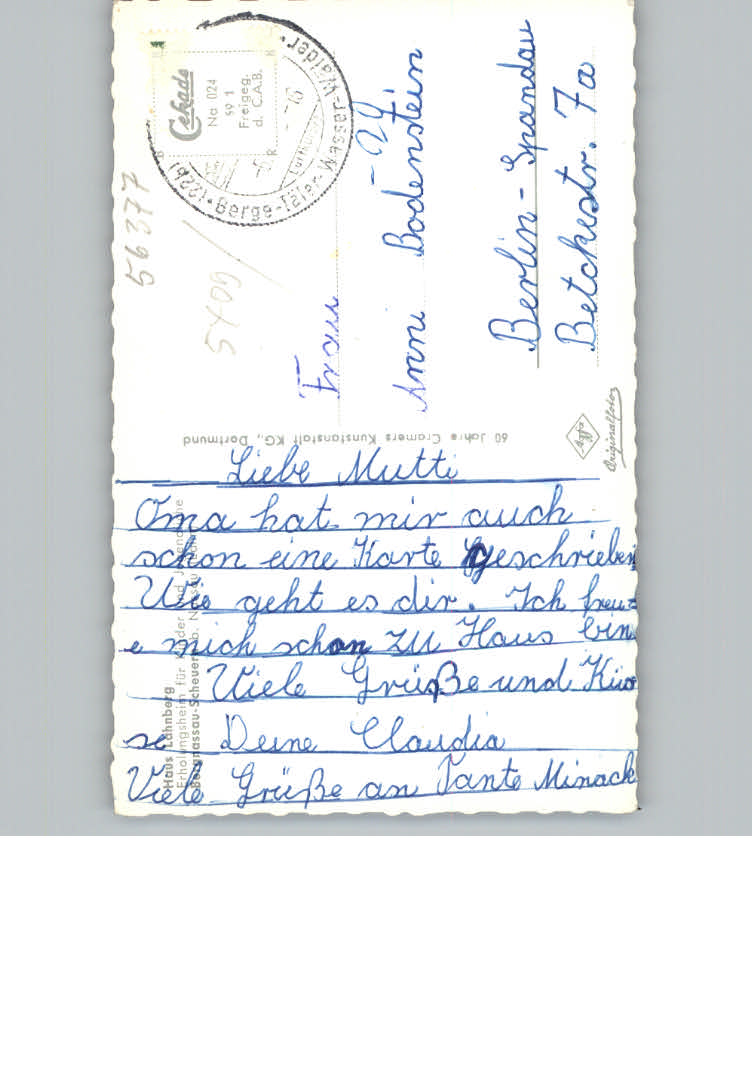 Liebe Mutti
Oma hat mir auch
schon eine Karte geschrieben
Wie geht es dir. Ich freu=
e mich schon zu Haus bin
Viele Grüße und Küs
se Deine Claudia
Viele Grüße an Tante Minack
Frau
Anni Bodenstein
Berlin-Spandau
Betckestr. 7a
56377
5409
Cekade
Na 024
59 1
Freigeg.
d. C.A.B.
(1622) • Berge-Täler-Wasser-Wälder •
60 Jahre Cramers Kunstanstalt KG., Dortmund
Agfa
Originalfoto
Haus Lahnberg
Erholungsheim für Kinder und Jugendliche
Bergnassau-Scheuern b. Nassau